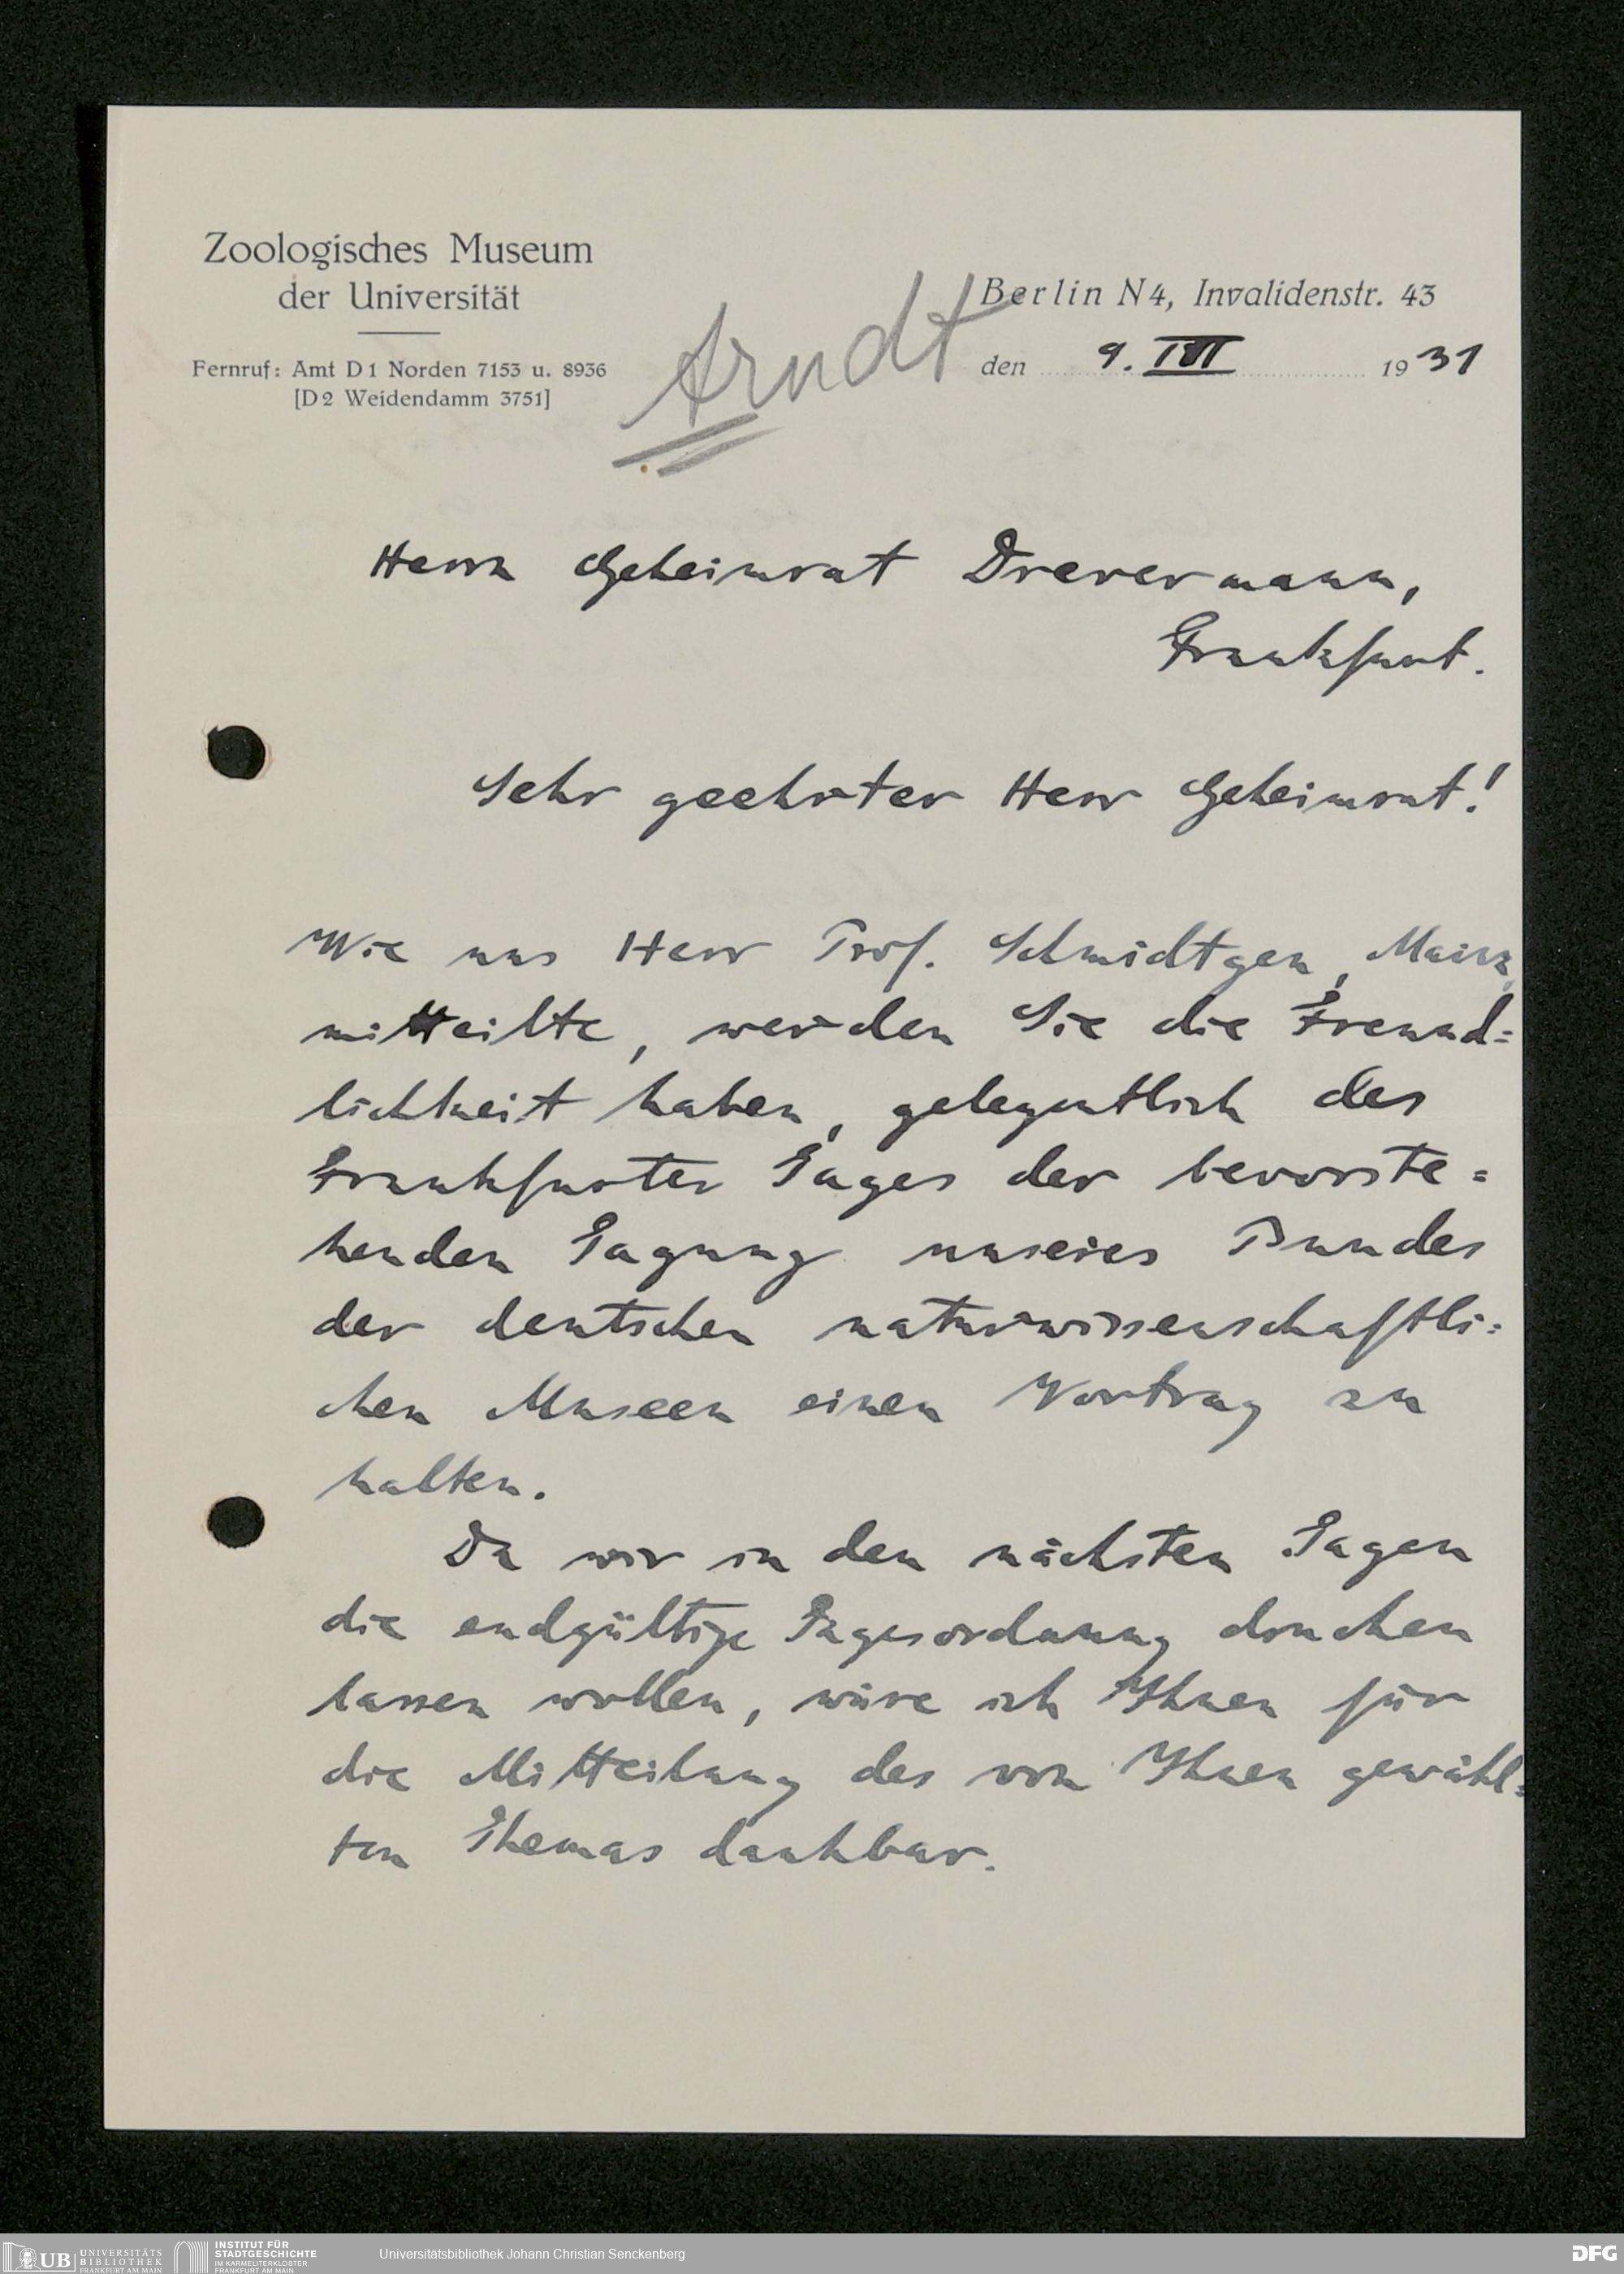 Zoologisches Museum
der Universität
Fernruf: Amt D 1 Norden 7153 u. 8936
[D 2 Weidendamm 3751]
Arndt
Berlin N 4, Invalidenstr. 43
den 9. III 1931
Herrn Geheimrat Drevermann,
Frankfurt.
Sehr geehrter Herr Geheimrat!
Wie uns Herr Prof. Schmidtgen, Mainz,
mitteilte, werden Sie die Freund=
lichkeit haben, gelegentlich des
Frankfurter Tages der bevorste=
henden Tagung unseres Bundes
der deutschen naturwissenschaftli=
chen Museen einen Vortrag zu
halten.
Da wir in den nächsten Tagen
die endgültige Tagesordnung drucken
lassen wollen, wäre ich Ihnen für
die Mitteilung des von Ihnen gewähl=
ten Themas dankbar.
UB UNIVERSITÄTS
BIBLIOTHEK
FRANKFURT AM MAIN
INSTITUT FÜR
STADTGESCHICHTE
IM KARMELITERKLOSTER
FRANKFURT AM MAIN
Universitätsbibliothek Johann Christian Senckenberg
DFG